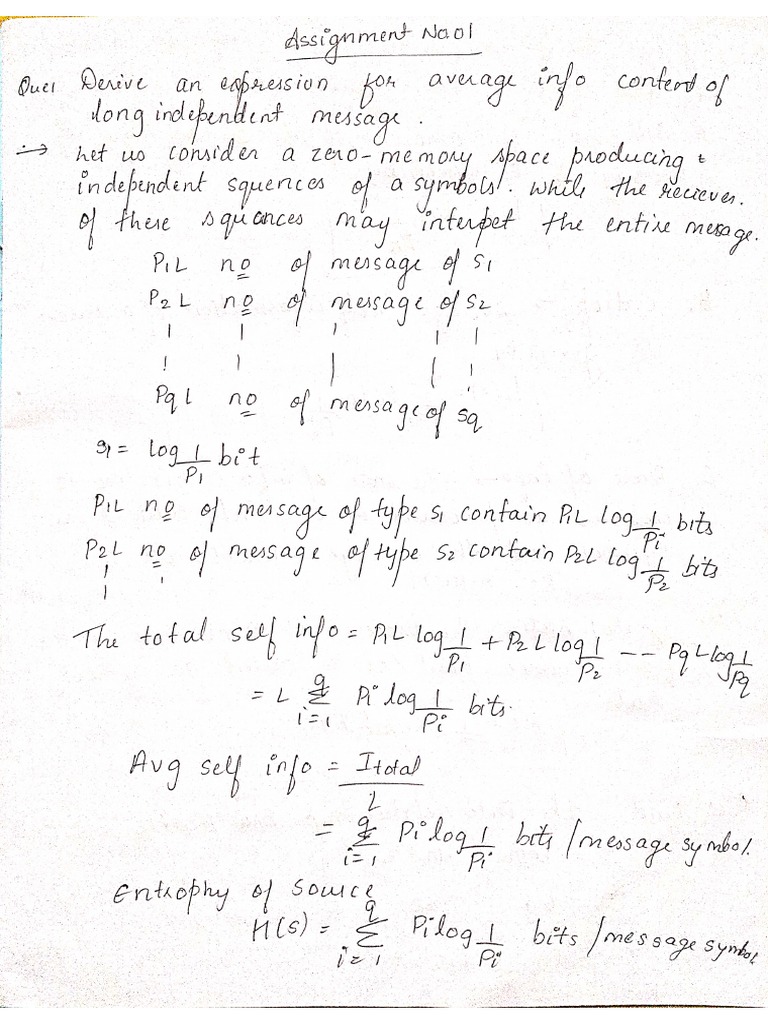 Assignment No01
Que1 Derive an expression for average info content of
long independent message.
:→ Let us consider a zero-memory space producing
independent squences of a symbols. while the reciever.
of these squances may interpet the entire mesage.
P1L no of message of S1
P2L no of message of S2
PqL no of message of Sq
S1 = log 1/P1 bit
P1L no of message of type S1 contain P1L log 1/Pi bits
P2L no of message of type S2 contain P2L log 1/P2 bits
The total self info = P1L log 1/P1 + P2L log 1/P2 -- PqL log 1/Pq
= L q Σ i=1 Pi log 1/Pi bits.
Avg self info = Itotal / L
= q Σ i=1 Pi log 1/Pi bits /message symbol.
Entrophy of source
H(S) = q Σ i=1 Pi log 1/Pi bits /message symbol.